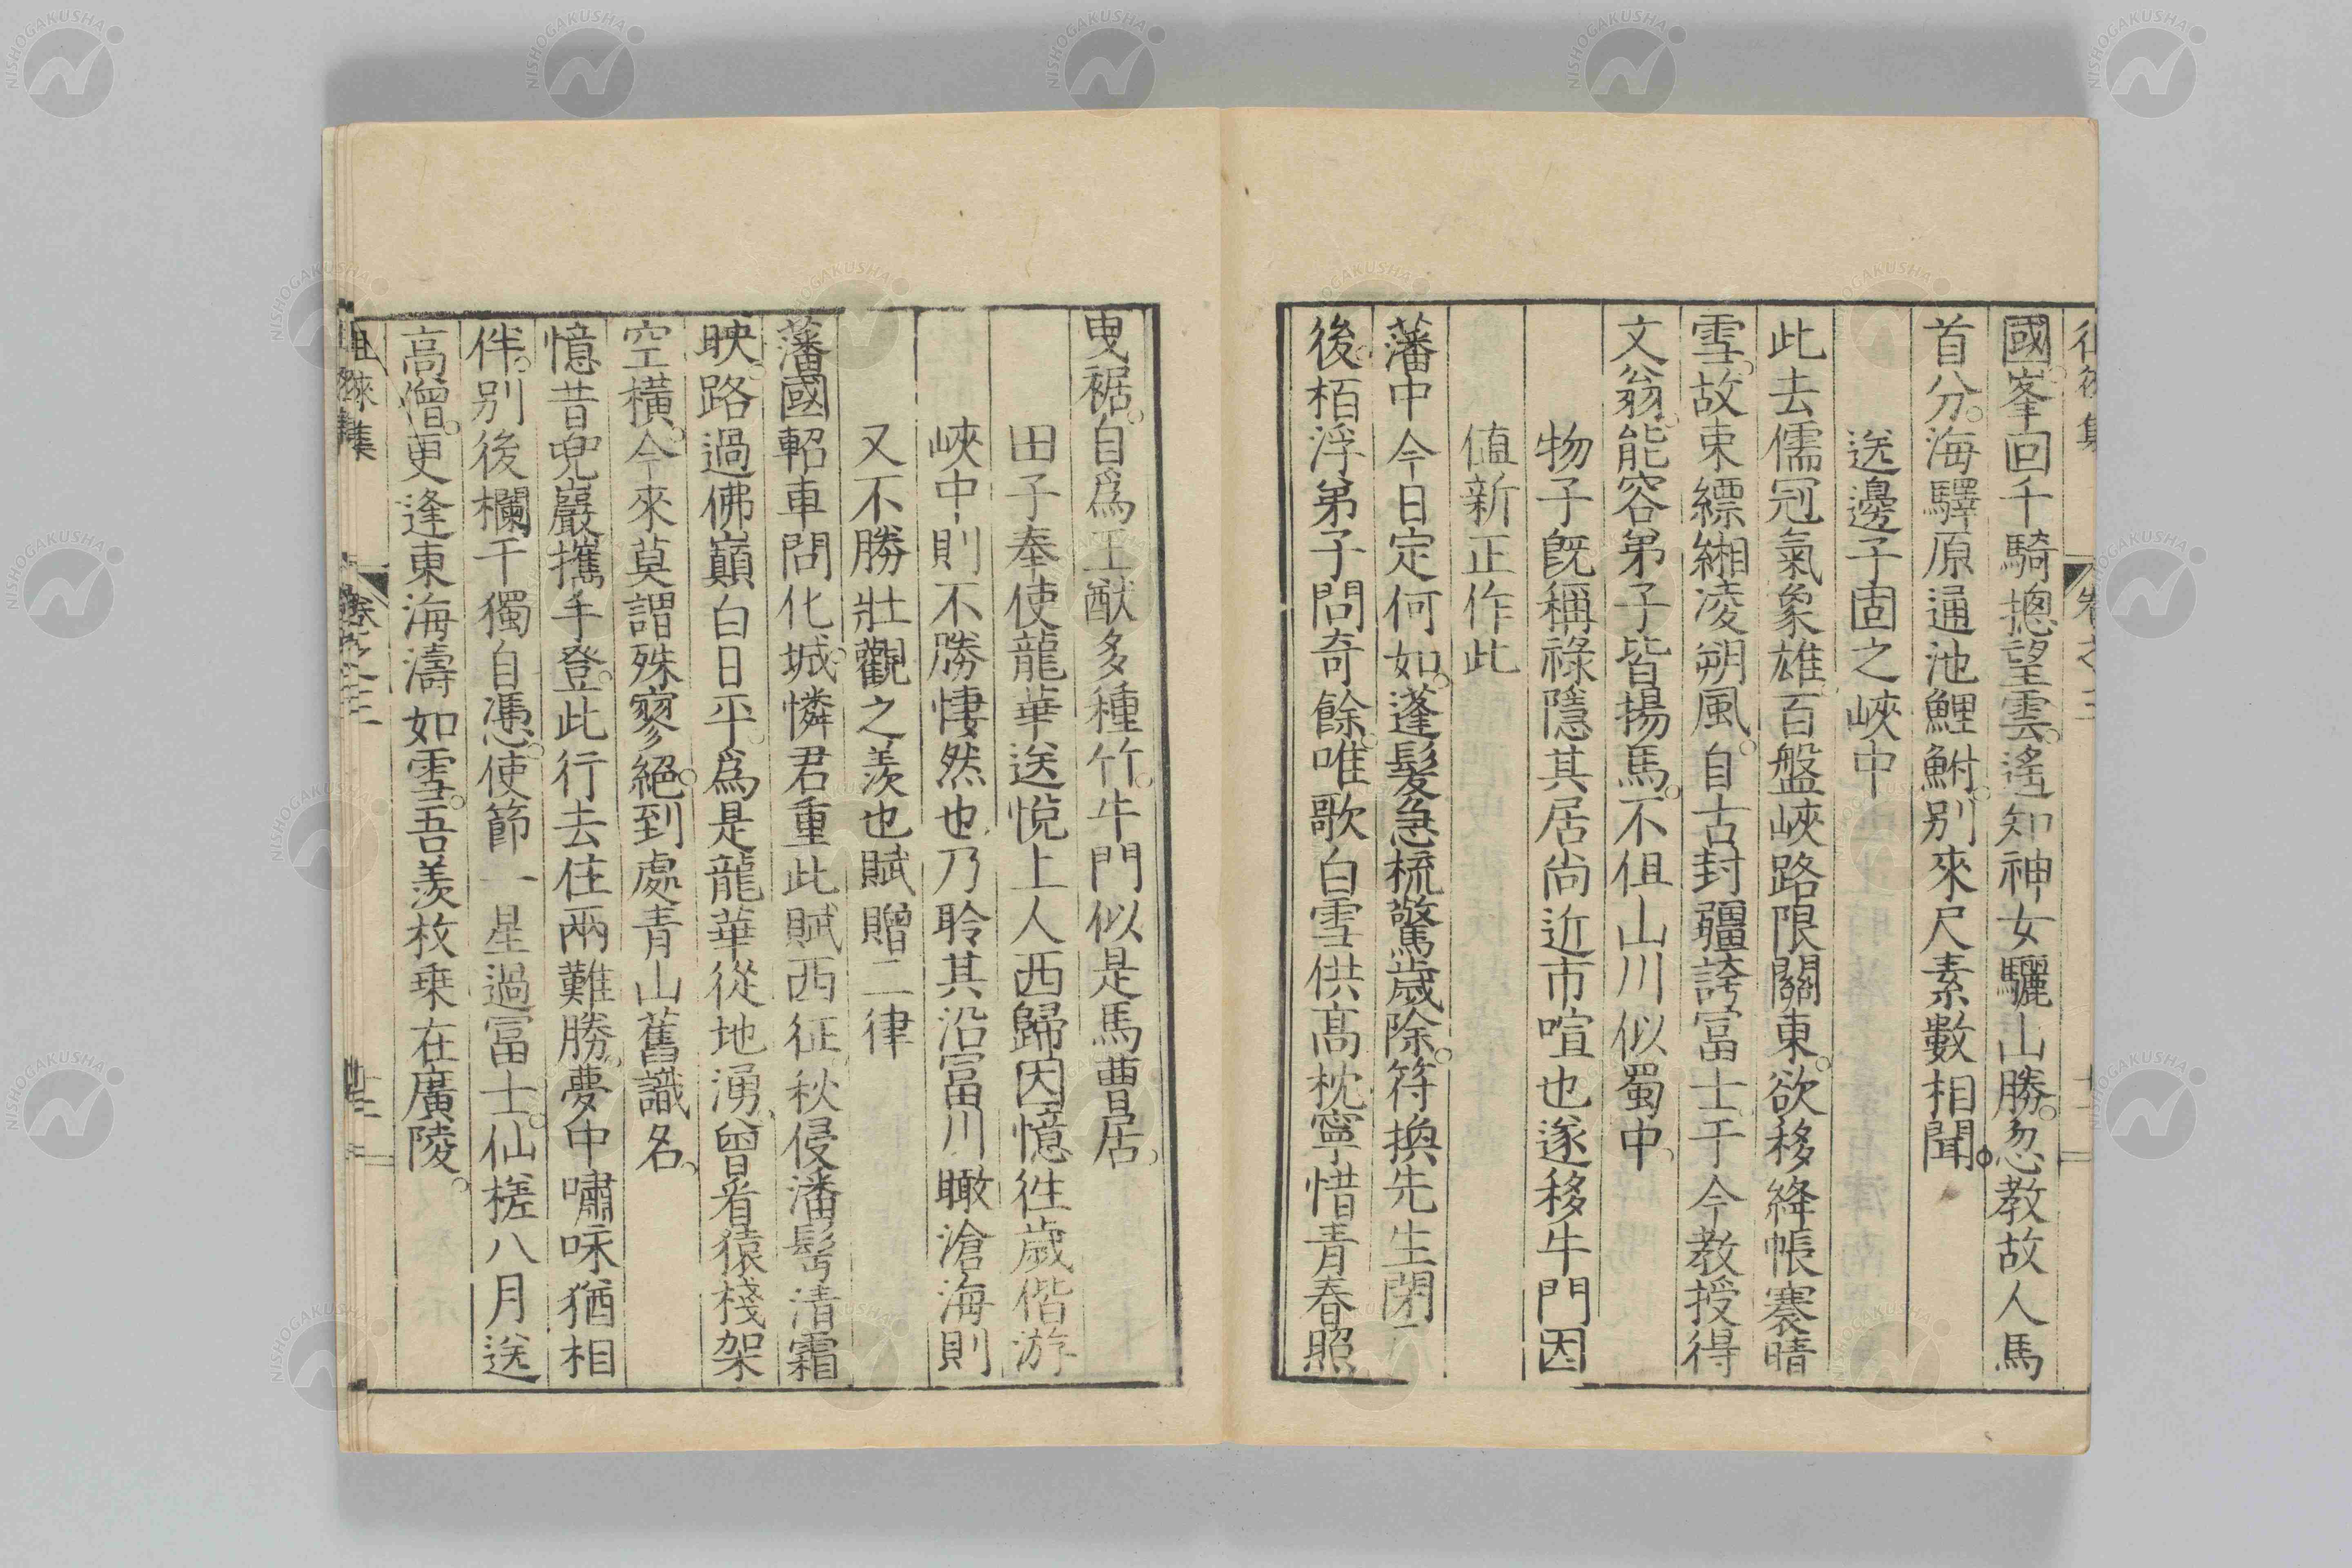 國峯回千騎摠望雲。遙知神女驪山勝。忽教故人馬
首分。海驛原通池鯉鮒。別來尺素數相聞。
送邊子固之峽中
此去儒冠氣象雄。百盤峽路限關東。欲移絳帳褰晴
雪。故束縹緗凌朔風。自古封疆誇冨士。于今教授得
文翁。能容弟子皆揚馬。不但山川似蜀中。
物子既稱祿隱其居尚近市喧也遂移牛門因
値新正作此
藩中今日定何如。蓬髮急梳驚歲除。符換先生閉戶
後。栢浮弟子問奇餘。唯歌白雪供高枕。寧惜青春照
曳裾。自爲王猷多種竹。牛門似是馬曹居。
田子奉使龍華送悅上人西歸因憶徃歲偕游
峽中則不勝悽然也。乃聆其沿冨川瞰滄海則
又不勝壯觀之羨也賦贈二律
藩國軺車問化城。憐君重此賦西征。秋侵潘髩清霜
映。路過佛巔白日平。爲是龍華從地湧。曾看猿棧架
空橫。今來莫謂殊寥絕。到處青山舊識名。
憶昔兜巖攜手登。此行去住兩難勝。夢中嘯咏猶相
伴。別後欄干獨自憑。使節一星過冨士。仙槎八月送
高僧。更逢東海濤如雪。吾羨枚乗在廣陵。
徂徠集 卷之三
NISHOGAKUSHA